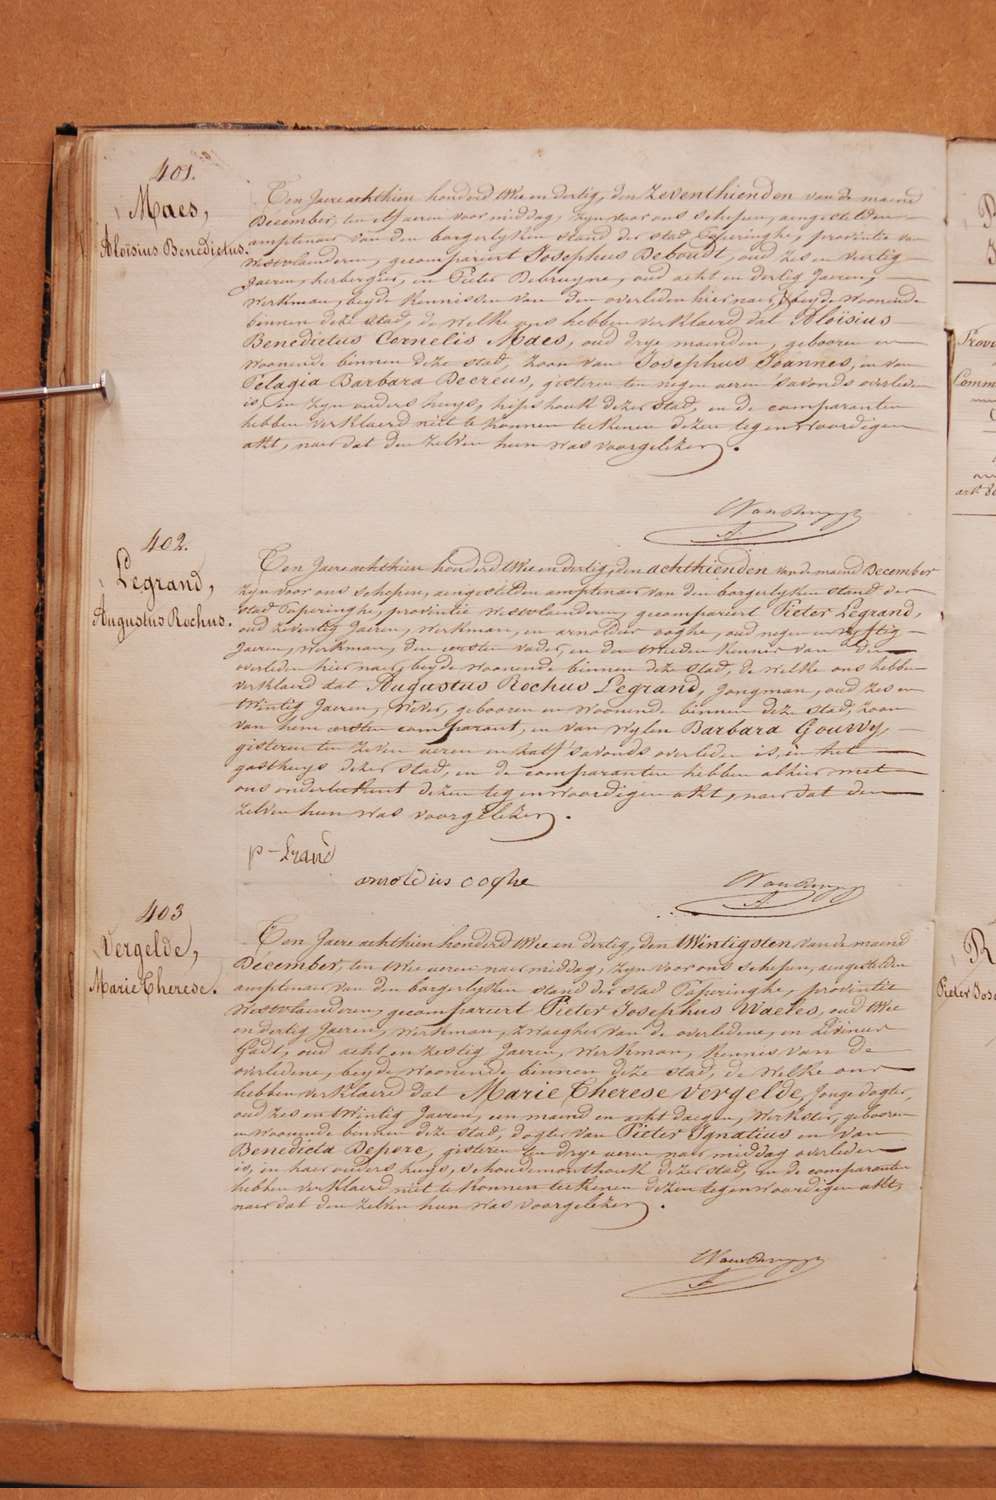 401.
Maes,
Aloïsius Benedictus.
Ten Jaere achthien honderd twee en dertig, den zeventhienden van de maend
December, ten elf ueren voor middag, zyn voor ons schepen, aengestelden
amptenaer van den borgerlyken stand der stad Poperinghe, provintie van
Westvlaenderen, gecompareert Josephus Deboudt, oud zes en veertig
Jaeren, herbergier, en Pieter Debruyne, oud acht en dertig Jaeren,
werkman, beyde kennissen van den overleden hier naer, beyde woonende
binnen deze stad, de welke ons hebben verklaerd dat Aloïsius
Benedictus Cornelis Maes, oud drye maenden, gebooren en
woonende binnen deze stad, zoon van Josephus Joannes, en van
Pelagia Barbara Decreus, gisteren ten negen ueren s'avonds overleden
is, in zyn ouders huys, hipshouk dezer stad, en de comparanten
hebben verklaerd niet te konnen teekenen dezen tegenwoordigen
akt, naer dat den zelven hun was voorgelezen.
402.
Legrand,
Augustus Rochus.
Ten Jaere achthien honderd twee en dertig, den achthienden van de maend December
zyn voor ons schepen, aengestelden amptenaer van den borgerlyken stand der
stad Poperinghe, provintie Westvlaenderen, gecompareert Pieter Legrand,
oud zeventig Jaeren, werkman, en arnoldus coghe, oud negen en vyftig
Jaeren, werkman, den eersten vader, en den tweeden kennis van den
overleden hier naer, beyde woonende binnen deze stad, de welke ons hebben
verklaerd dat Augustus Rochus Legrand, jongman, oud zes en
twintig Jaeren, wever, gebooren en woonende binnen deze stad, zoon
van hem eersten comparant, en van wylen Barbara Gouwy,
gisteren ten zeven ueren en half s'avonds overleden is, in het
gasthuys dezer stad, en de comparanten hebben alhier met
ons onderteekent dezen tegenwoordigen akt, naer dat den
zelven hun was voorgelezen.
arnoldus coghe
403
Vergelde,
Marie Therese.
Ten Jaere achthien honderd twee en dertig, den twintigsten van de maend
December, ten twee ueren naer middag, zyn voor ons schepen, aengestelden
amptenaer van den borgerlyken stand der stad Poperinghe, provintie
Westvlaenderen, gecompareert Pieter Josephus Waeles, oud twee
en dertig Jaeren, werkman, zwaegher van de overledene, en Livinus
oud acht en zestig Jaeren, werkman, kennis van de
overledene, beyde woonende binnen deze stad, de welke ons
hebben verklaerd dat Marie Therese Vergelde, jonge dogter,
oud zes en twintig Jaeren, een maend en acht daegen, werkster, gebooren
en woonende binnen deze stad, dogter van Pieter Ignatius en van
Benedicta Depere, gisteren ten drye ueren naer middag overleden
is, in haer ouders huys, schoudemonthouk dezer stad, en de comparanten
hebben verklaerd niet te konnen teekenen dezen tegenwoordigen akt,
naer dat den zelven hun was voorgelezen.